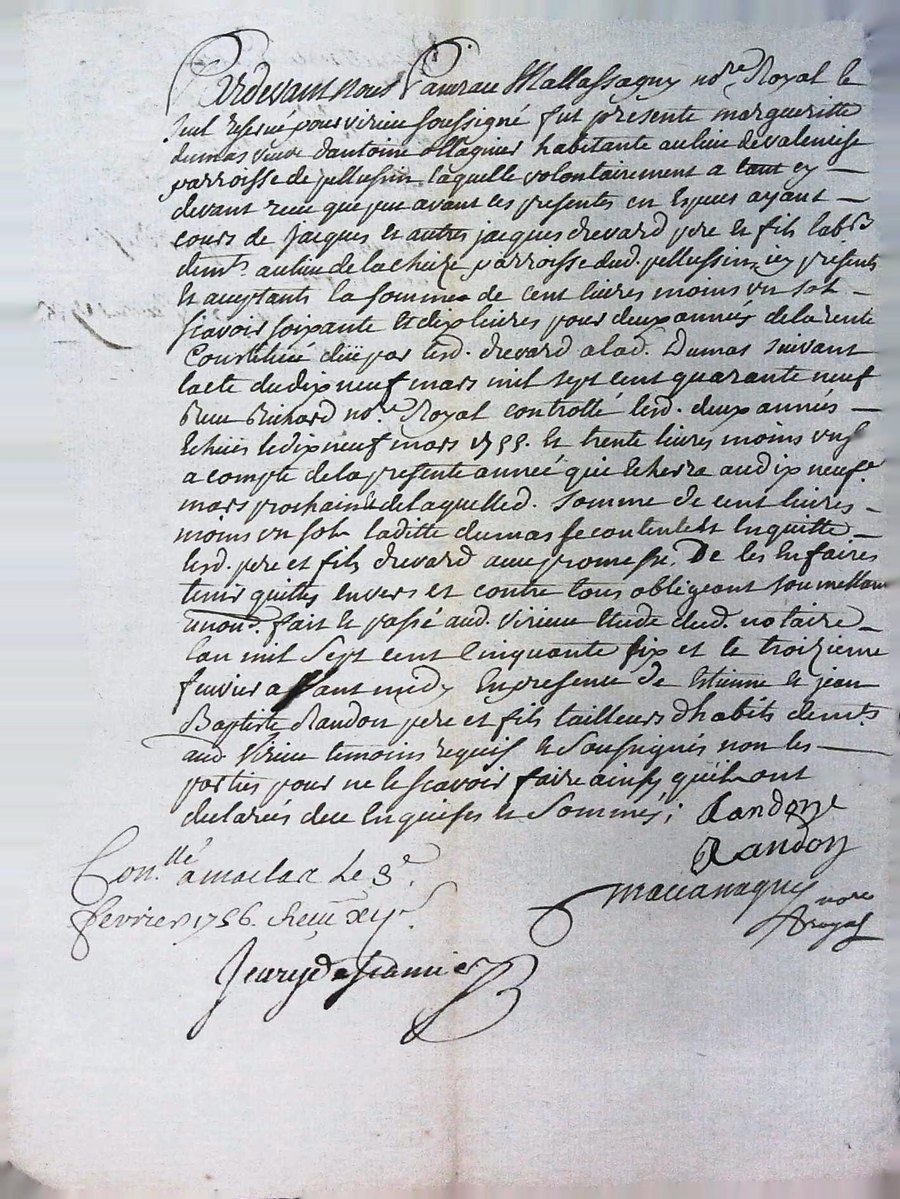 Pardevant nous Mallassagny no.re Royal le
seul reservé pour virieu soussigné fut présente margueritte
dumas veuve dantoine ollagnier habitante au lieu de valencise
parroisse de pellussin laquelle volontairement a tant cy
devant receu que peu avant ces presentes en Especes ayant
cours de Jacques et autres jacques drevard pere et fils lab.rs
dem.ts au lieu de la parroisse dud. pellussin, icy présents
Et aceptants la somme de cent livres moins un sol
scavoir soixante et dix livres pour deux années de la rente
Constituée düe par lesd. drevard a lad. Dumas suivant
lacte du dix neuf mars mil sept cent quarante neuf
Receu Richard no.re Royal controllé lesd. deux années
Echües le dix neuf mars 1755. Et trente livres moins un s
a compte de la présente année qui Echerra au dix neuf
mars prochain de laquelle d. somme de cent livres
moins un sol laditte dumas se contente et En quitte
lesd. pere et fils drevard avec promesse De les En faires
tenir quittes envers et contre tous obligeant soumettant
renon. fait et passé aud. virieu Etude dud. notaire
lan mil sept cent cinquante six et le troizieme
fevrier avant midy En presence de Estienne et jean
Baptiste Randon pere et fils tailleurs dhabits dem.ts
aud. Virieu temoins requis et soussignés non les
parties pour ne le scavoir faire ainsy quils ont
declarés de ce Enquises et Sommés;
Randon
Randon
no.re
Royal
Con.llé a maclas Le 3.e
fevrier 1756. Receu